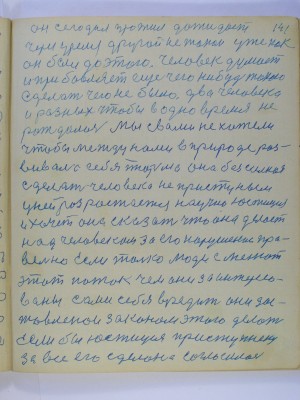 он сегодня прожил дожидает 141
чем умел другой не такой уже как
он был до этого. Человек думает
и прибавляет еще чего нибудь только
сделать чего не было. два человека
и разных чтобы в одно время не
рождалось мы с вами не хотели
чтобы между нами в природе раз-
вивалась себя она без силия
сделать человека не приступным
у ней розростается научно юстиция
и хочет она сказать что она дает
над человеком за его нарушение пра-
вельно если только люди с
этим поток чем они заинтересо-
ваны сами себя вредит они зас-
тавленой законом этого делать
если бы юстиция приступнику
за все его сделано согласилась